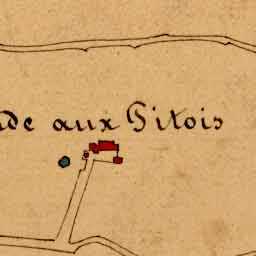 de aux Gitois